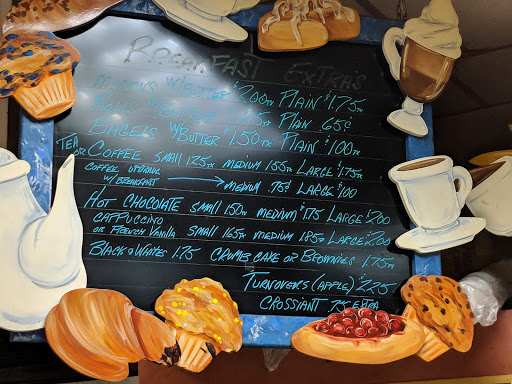 BREAKFAST EXTRA'S
MUFFINS W/BUTTER $2.00TX PLAIN $1.75TX
ROLLS W/BUTTER TX PLAIN 65¢
BAGELS W/BUTTER $1.50TX PLAIN $1.00TX
TEA OR COFFEE SMALL 1.25TX MEDIUM 1.55TX LARGE $1.75TX
COFFEE UPGRADE W/BREAKFAST → MEDIUM .75¢ LARGE $1.00
HOT CHOCOLATE SMALL 1.50TX MEDIUM $1.75 LARGE $2.00
CAPPUCCINO
OR FRENCH VANILLA SMALL 1.65TX MEDIUM 1.85TX LARGE $2.00
BLACK & WHITES 1.75 CRUMB CAKE OR BROWNIES 1.75TX
TURNOVERS (APPLE) $2.25
CROSSIANT 75¢ EXTRA